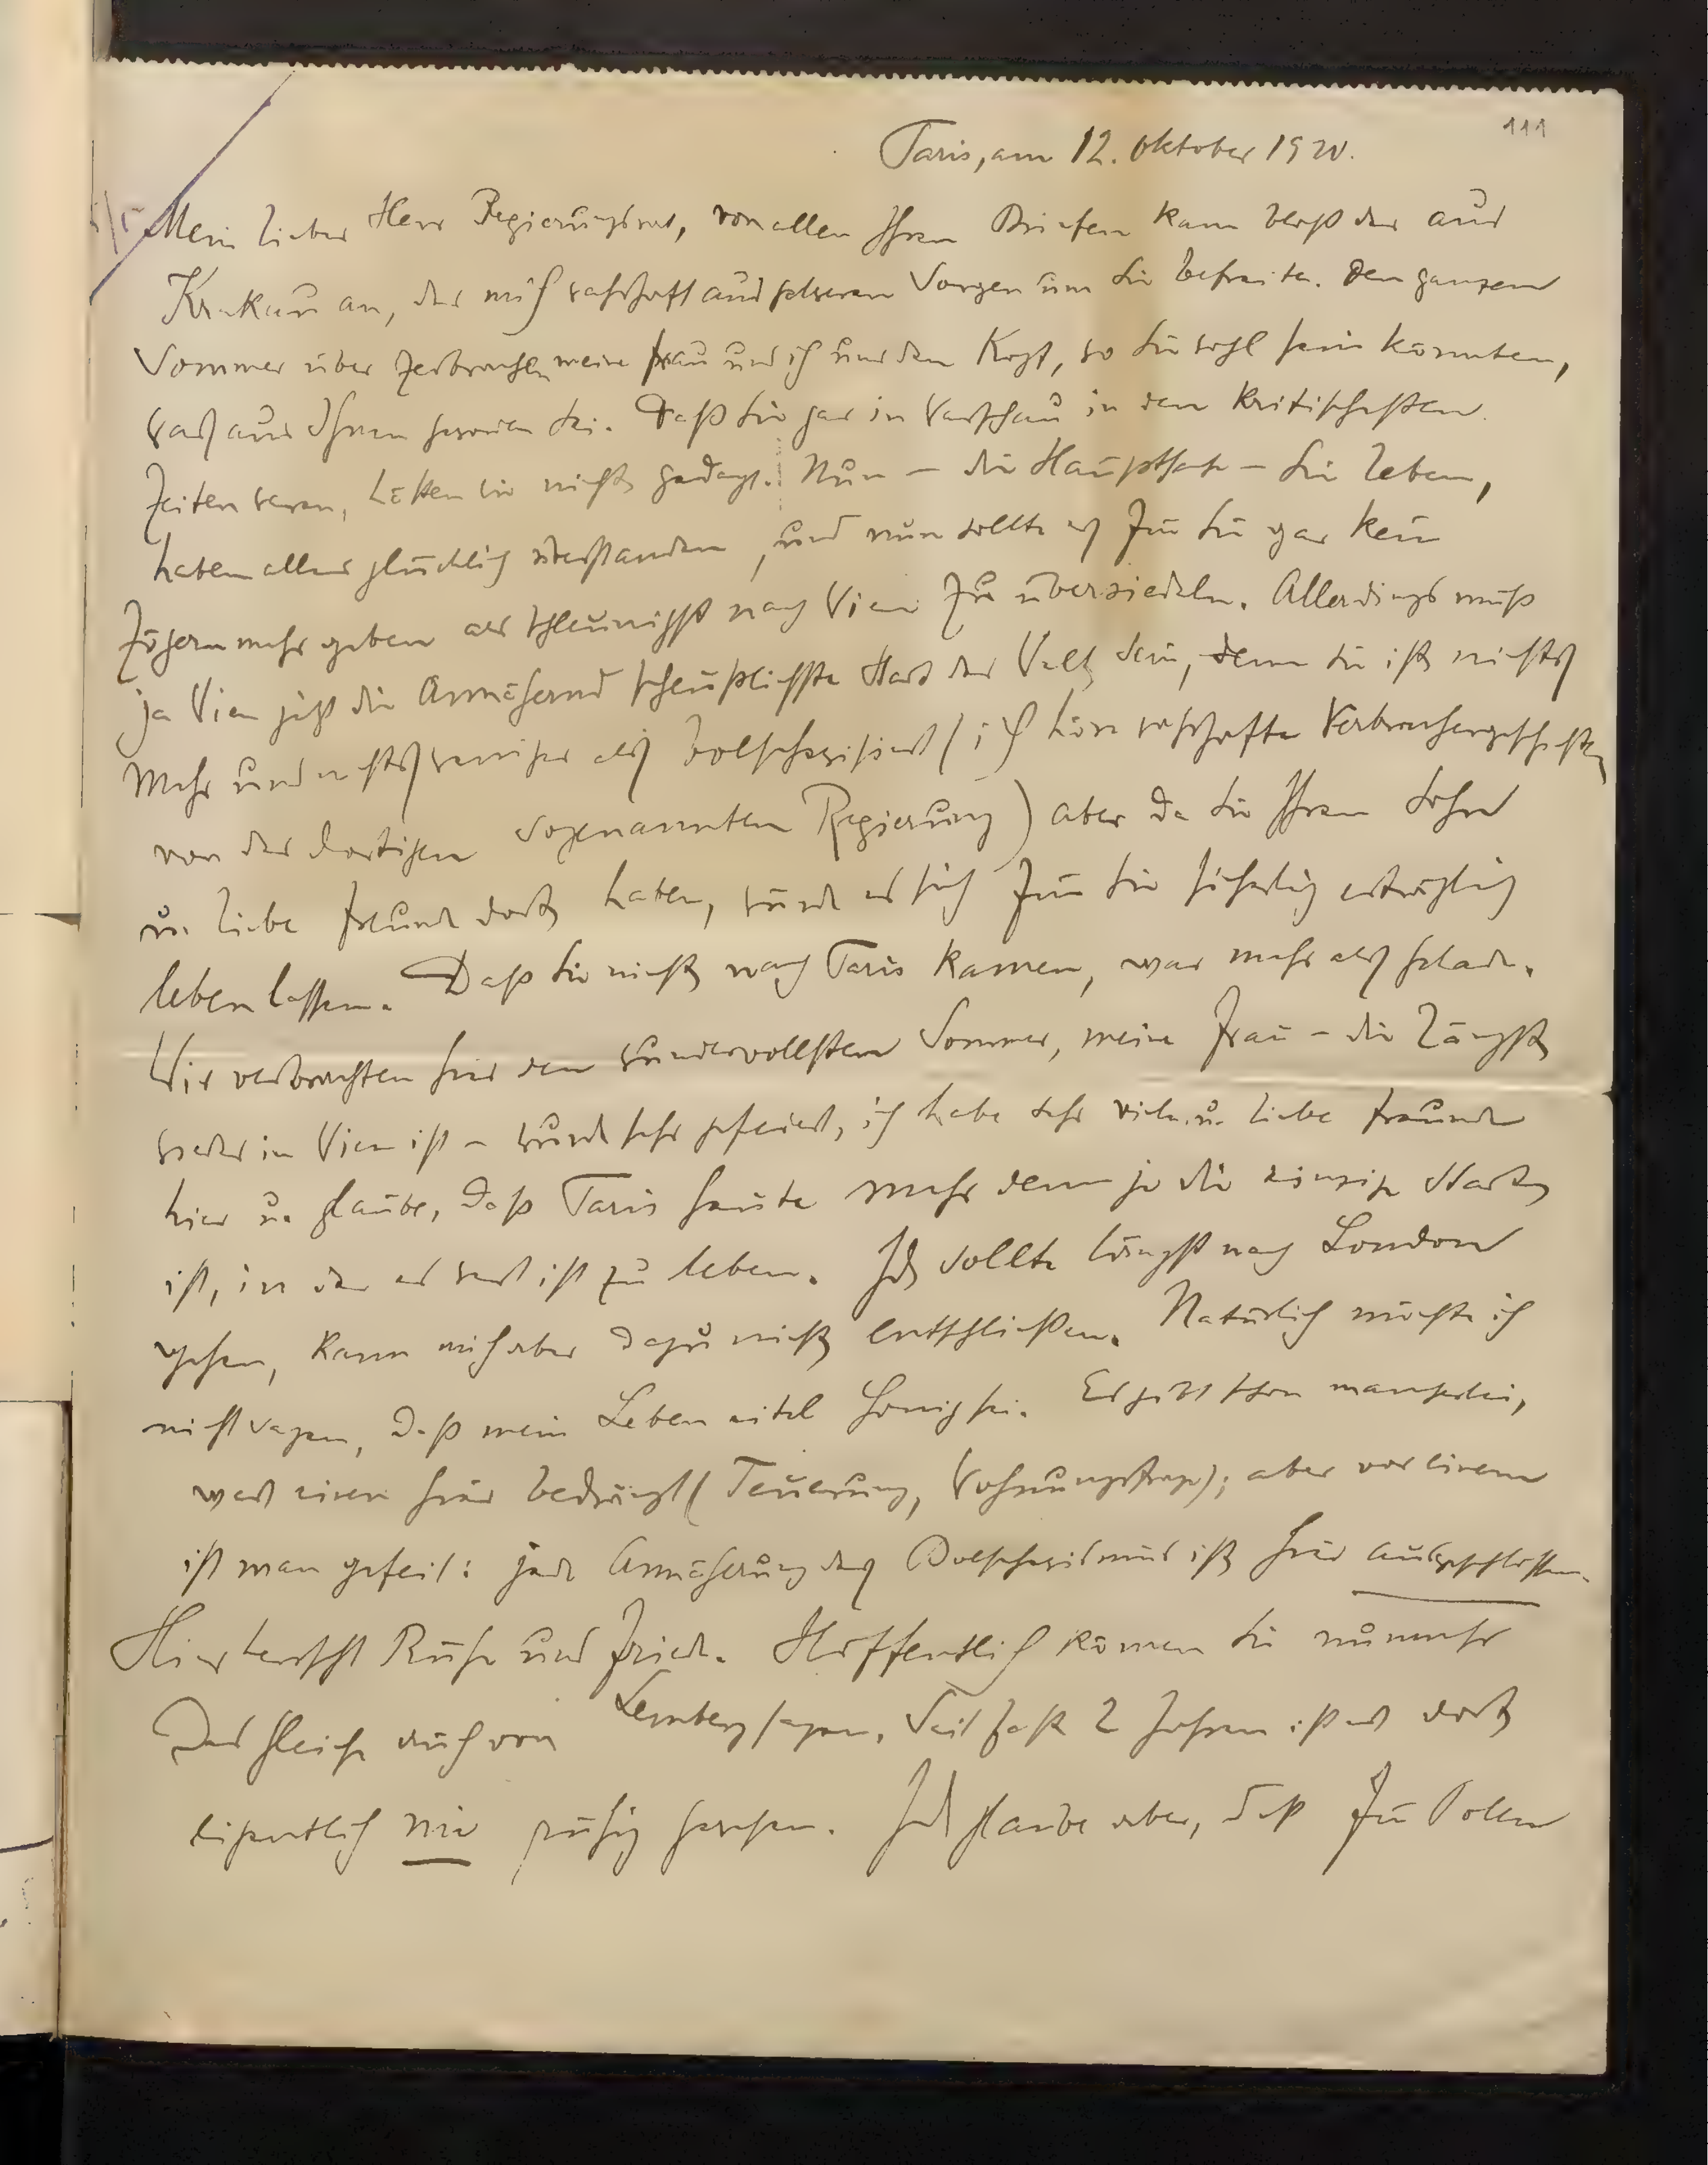 111
Paris, am 12. Oktober 1920.
Mein lieber Herr Regierungsrat, von allen Ihren Briefen kam bloß der aus
Krakau an, der mich wahrhaft aus schweren Sorgen um Sie befreite. Den ganzen
Sommer über zerbrachen meine Frau und ich uns den Kopf, wo Sie wohl sein könnten,
was aus Ihnen geworden sei. Daß Sie gar in Warschau in den kritischesten
Zeiten waren, hätten wir nicht gedacht. Nun – die Hauptsache – Sie leben,
haben alles glücklich überstanden, und nun sollte es für Sie gar kein
Zögern mehr geben als schleunigst nach Wien zu übersiedeln. Allerdings muß
ja Wien jetzt die annähernd scheußlichste Stadt der Welt sein, denn sie ist nichts
mehr und nichts weniger als bolschewisiert (ich höre wahrhafte Verbrechergeschichten
von der dortigen sogenannten Regierung) aber da Sie Ihren Sohn
u. liebe Freunde dort haben, würde es sich für Sie sicherlich erträglich
leben lassen. Daß Sie nicht nach Paris kamen, war mehr als schade.
Wir verbrachten hier den wundervollsten Sommer, meine Frau – die längst
wieder in Wien ist – wurde sehr gefeiert, ich habe sehr viele u. liebe Freunde
hier u. glaube, daß Paris heute mehr denn je die einzige Stadt
ist, in der es wert ist zu leben. Ich sollte längst nach London
gehen, kann mich aber dazu nicht entschließen. Natürlich möchte ich
nicht sagen, daß mein Leben eitel Honig sei. Es gibt schon mancherlei,
was einen hier bedrängt (Teuerung, Wohnungsfrage); aber vor einem
ist man gefeit: jede Annäherung des Bolschewismus ist hier ausgeschlossen.
Hier herrscht Ruhe und Friede. Hoffentlich können Sie nunmehr
das gleiche auch von Lemberg sagen. Seit fast 2 Jahren ist es dort
eigentlich nie ruhig gewesen. Ich glaube aber, daß für Polen